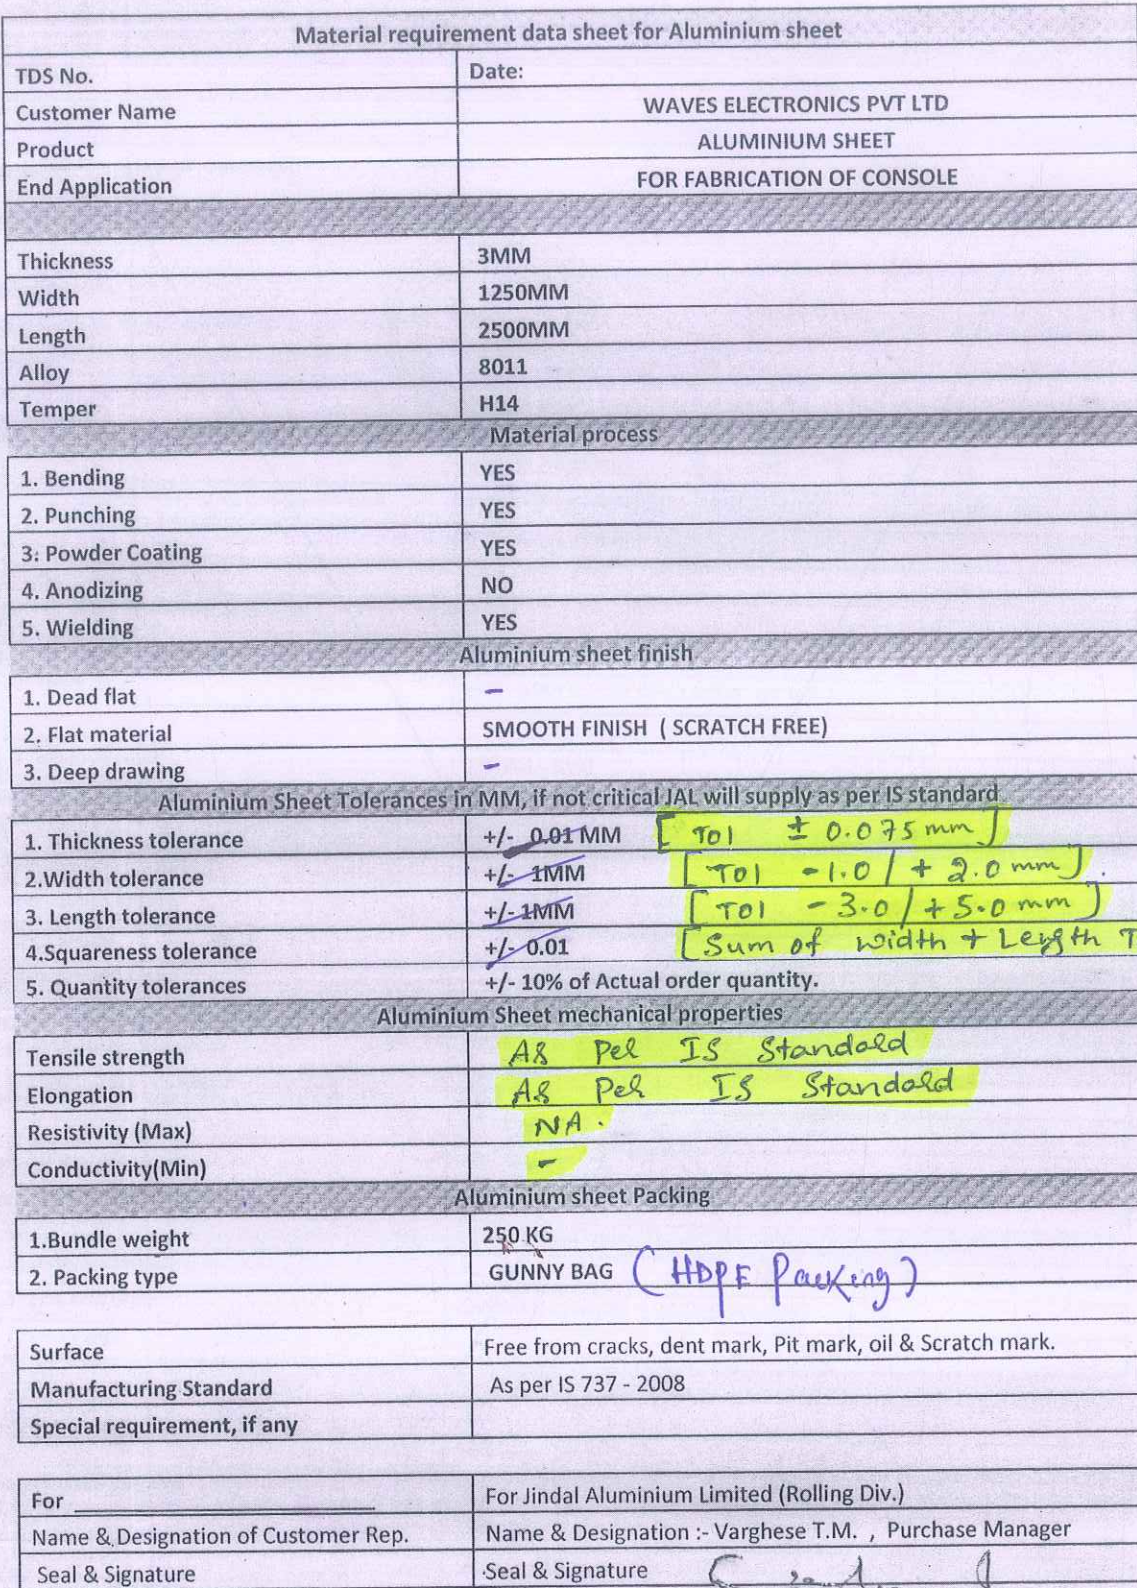 Material requirement data sheet for Aluminium sheet
TDS No. Date:
Customer Name WAVES ELECTRONICS PVT LTD
Product ALUMINIUM SHEET
End Application FOR FABRICATION OF CONSOLE
Thickness 3MM
Width 1250MM
Length 2500MM
Alloy 8011
Temper H14
Material process
1. Bending YES
2. Punching YES
3. Powder Coating YES
4. Anodizing NO
5. Wielding YES
Aluminium sheet finish
1. Dead flat -
2. Flat material SMOOTH FINISH ( SCRATCH FREE)
3. Deep drawing -
Aluminium Sheet Tolerances in MM, if not critical JAL will supply as per IS standard
1. Thickness tolerance +/- 0.01 MM [ Tol ± 0.075 mm ]
2.Width tolerance +/- 1MM [ Tol -1.0 / + 2.0 mm ].
3. Length tolerance +/- 1MM [ Tol - 3.0 / + 5.0 mm ]
4.Squareness tolerance +/- 0.01 [ Sum of width + Length T
5. Quantity tolerances +/- 10% of Actual order quantity.
Aluminium Sheet mechanical properties
Tensile strength As Per IS Standard
Elongation As Per IS Standard
Resistivity (Max) NA.
Conductivity(Min) -
Aluminium sheet Packing
1.Bundle weight 250 KG
2. Packing type GUNNY BAG (HDPE Packing)
Surface Free from cracks, dent mark, Pit mark, oil & Scratch mark.
Manufacturing Standard As per IS 737 - 2008
Special requirement, if any
For ____________ For Jindal Aluminium Limited (Rolling Div.)
Name & Designation of Customer Rep. Name & Designation :- Varghese T.M. , Purchase Manager
Seal & Signature Seal & Signature